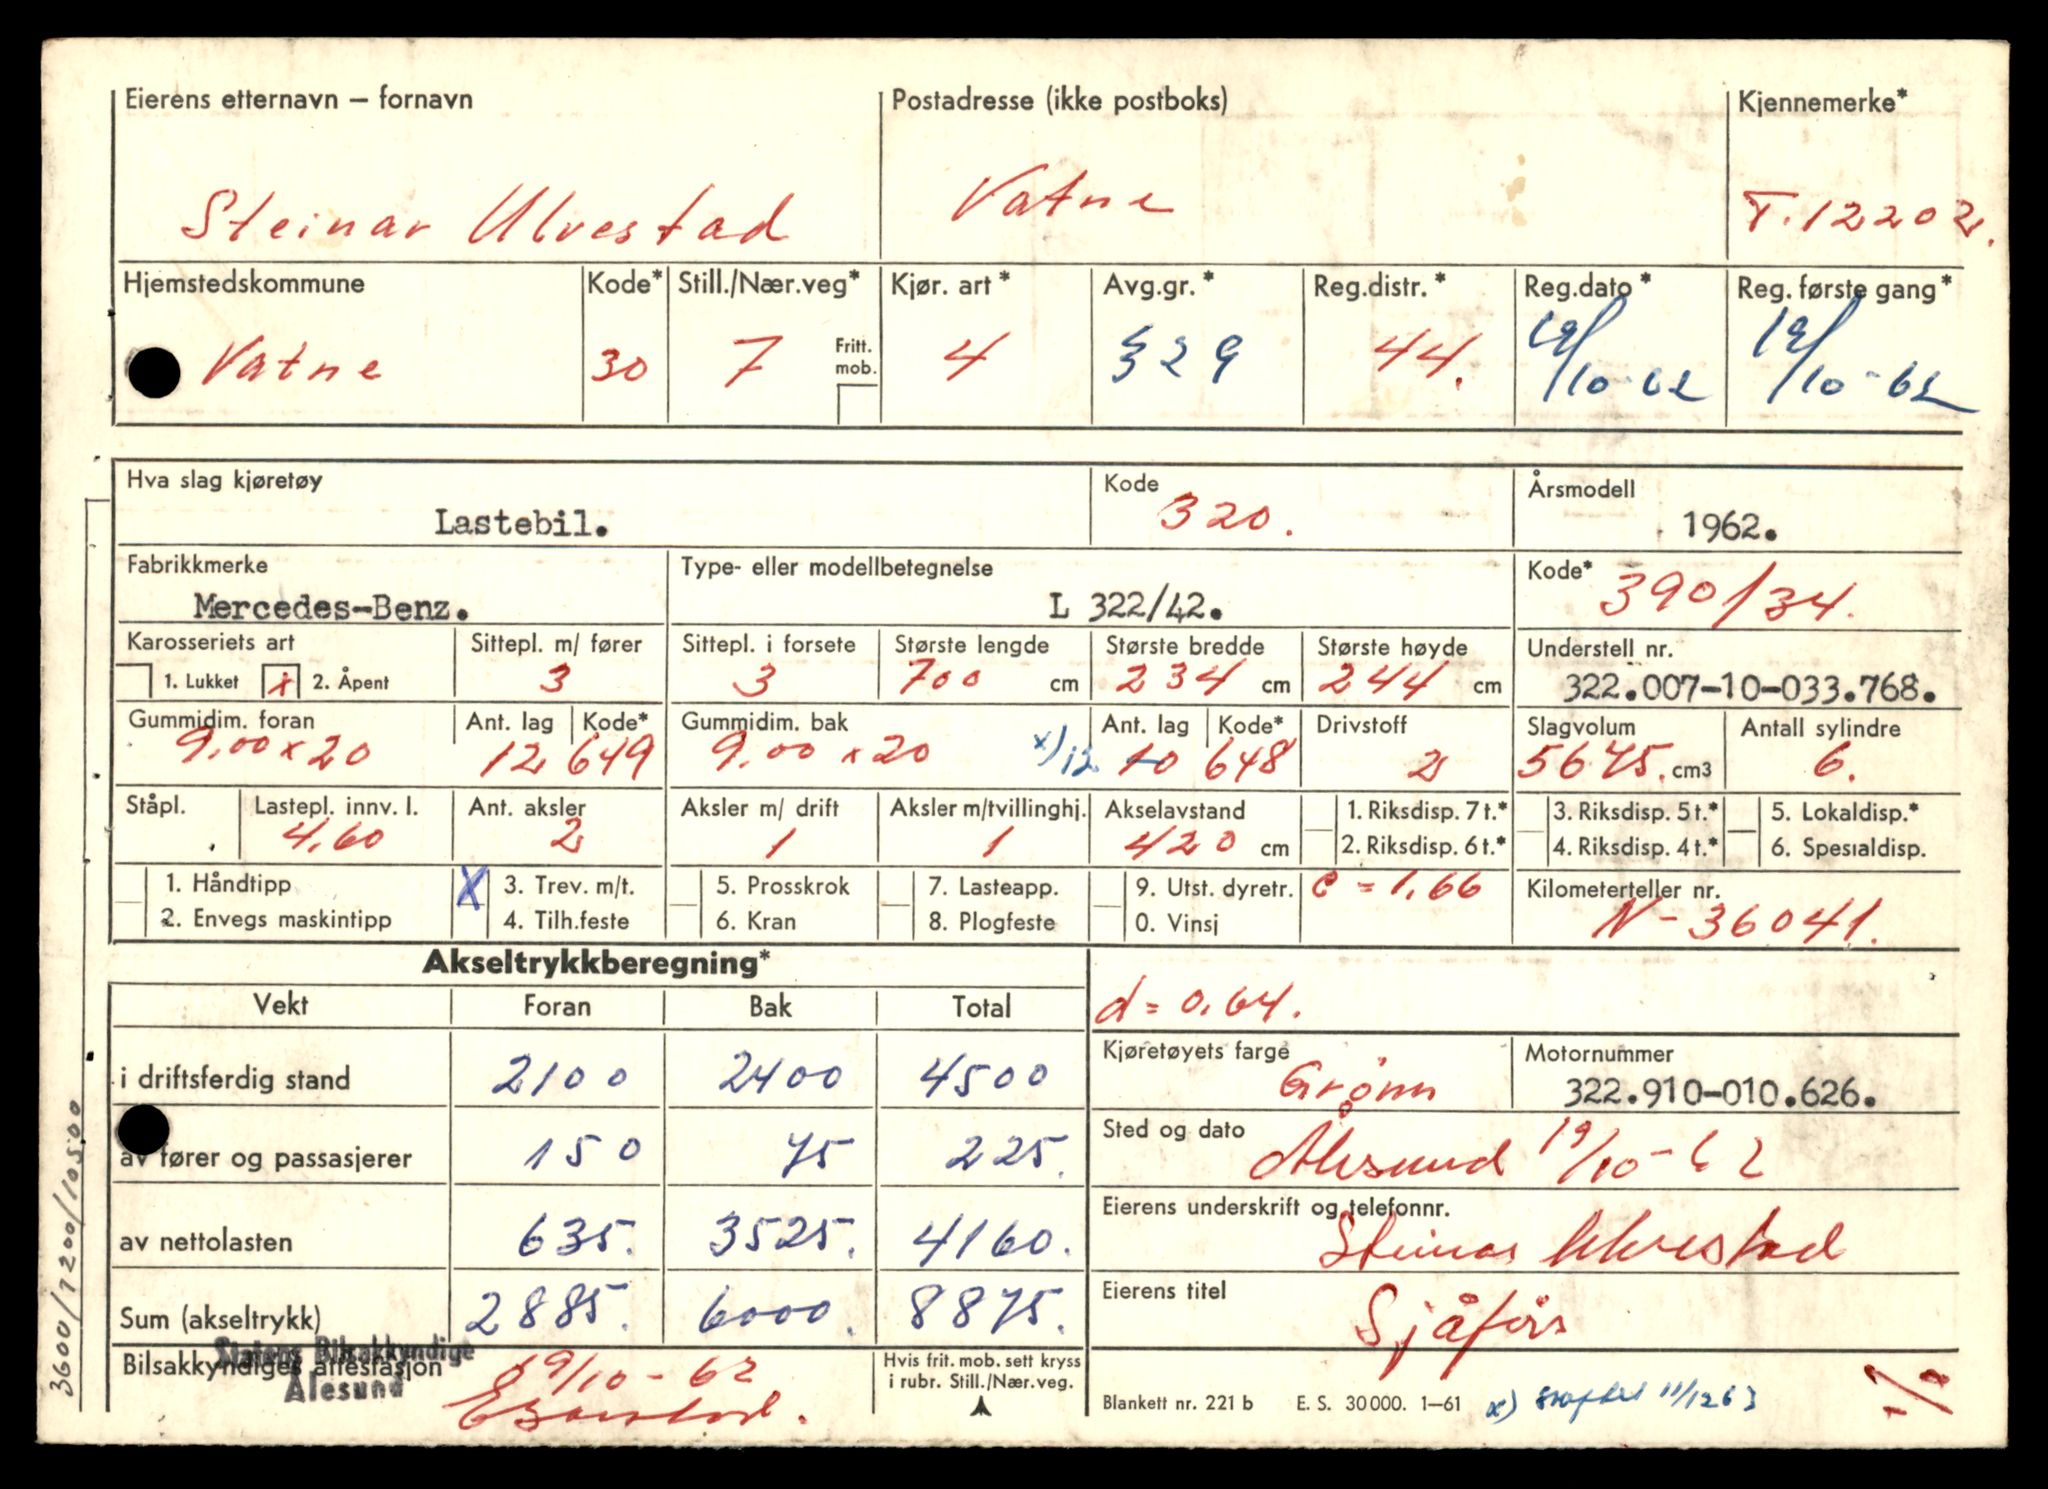 Eierens etternavn – fornavn Postadresse (ikke postboks) Kjennemerke*
Steinar Ulvestad Vatne T.12202.
Hjemstedskommune Kode* Still./Nær.veg* Kjør. art* Avg.gr.* Reg.distr.* Reg.dato* Reg. første gang*
Vatne 30 7 Fritt. mob. 4 §29 44. 19/10-62 19/10-62
Hva slag kjøretøy Kode Årsmodell
Lastebil. 320. 1962.
Fabrikkmerke Type- eller modellbetegnelse Kode*
Mercedes-Benz. L 322/42. 390/34.
Karosseriets art Sittepl. m/ fører Sittepl. i forsete Største lengde Største bredde Største høyde Understell nr.
1. Lukket x 2. Åpent 3 3 700 cm 234 cm 244 cm 322.007-10-033.768.
Gummidim. foran Ant. lag Kode* Gummidim. bak Ant. lag Kode* Drivstoff Slagvolum Antall sylindre
9,00 x 20 12 649 9,00 x 20 x)12 10 648 2 5675. cm3 6.
Ståpl. Lastepl. innv. l. Ant. aksler Aksler m/ drift Aksler m/tvillinghj. Akselavstand 1. Riksdisp. 7 t.* 3. Riksdisp. 5 t.* 5. Lokaldisp.*
4,60 2 1 1 420 cm 2. Riksdisp. 6 t.* 4. Riksdisp. 4 t.* 6. Spesialdisp.
1. Håndtipp X 3. Trev. m/t. 5. Prosskrok 7. Lasteapp. 9. Utst. dyretr. c = 1,66 Kilometerteller nr.
2. Envegs maskintipp 4. Tilh.feste 6. Kran 8. Plogfeste 0. Vinsj N-36041.
Akseltrykkberegning*
Vekt Foran Bak Total d = 0,64.
i driftsferdig stand 2100 2400 4500
Kjøretøyets farge Motornummer
Grønn 322.910-010.626.
av fører og passasjerer 150 75 225.
Sted og dato
Ålesund 19/10-62
av nettolasten 635. 3525. 4160.
Eierens underskrift og telefonnr.
Steinar Ulvestad
Sum (akseltrykk) 2885. 6000. 8875.
Eierens titel
Sjåfør
Bilsakkyndiges attestasjon
Statens Bilsakkyndige
Ålesund
19/10-62
Hvis frit. mob. sett kryss
i rubr. Still./Nær.veg.
Blankett nr. 221 b E. S. 30 000. 1–61 x) 11/12 63
3600/7200/10500